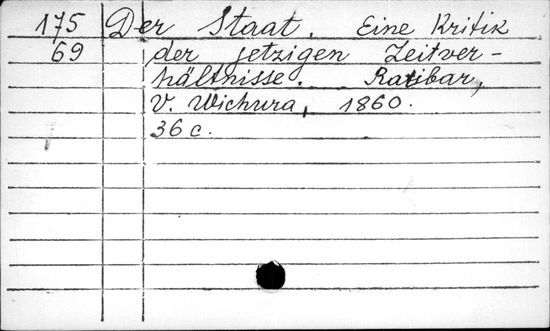 175 Der Staat. Eine Kritik
69 der jetzigen Zeitver-
hältnisse. Ratibar,
V. Wichura, 1860.
36 c.